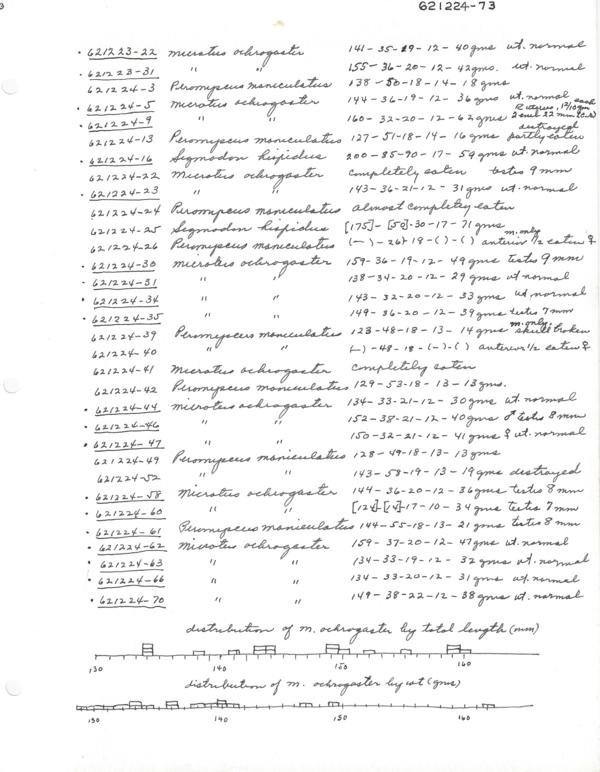 621224-73
• 621223-22 microtus ochrogaster 141-35-19-12-40gms ut. normal
• 621223-31 " " 155-36-20-12-42gms. ut. normal
621224-3 Peromyscus maniculatus 138-50-18-14-18gms
• 621224-5 microtus ochrogaster 144-36-19-12-36gms ut. normal
• 621224-9 " " 160-32-20-12-62gms 2 emb 22mm (C-R)
621224-13 Peromyscus maniculatus 127-51-18-14-16gms destroyed partly eaten
• 621224-16 Sigmodon hispidus 200-85-90-17-59gms ut. normal
621224-22 Microtus ochrogaster completely eaten testis 9mm
• 621224-23 " " 143-36-21-12-31gms ut. normal
621224-24 Peromyscus maniculatus almost completely eaten
621224-25 Sigmodon hispidus [175]-[50]-30-17-71gms
621224-26 Peromyscus maniculatus (-)-26+18-( )-( ) m. only anterior 1/2 eaten &
• 621224-30 microtus ochrogaster 159-36-19-12-49gms testis 9mm
• 621224-31 " " 138-34-20-12-29gms ut normal
• 621224-34 " " 143-32-20-12-33gms ut normal
• 621224-35 " " 149-36-20-12-39gms testis 7mm
621224-39 Peromyscus maniculatus 123-48-18-13-14gms m. only skull broken
621224-40 " " (-)-48-18-(-)-( ) anterior 1/2 eaten &
621224-41 Microtus ochrogaster completely eaten
621224-42 Peromyscus maniculatus 129-53-18-13-13gms.
• 621224-44 microtus ochrogaster 134-33-21-12-30gms ut. normal
• 621224-46 " " 152-38-21-12-40gms ♂ testis 8mm
• 621224-47 " " 150-32-21-12-41gms ♀ ut. normal
621224-49 Peromyscus maniculatus 128-49-18-13-13gms
621224-52 " " 143-58-19-13-19gms destroyed
• 621224-58 Microtus ochrogaster 144-36-20-12-36gms testis 8mm
• 621224-60 " " [124]-[14]-17-10-34gms testis 7mm
• 621224-61 Peromyscus maniculatus 144-55-18-13-21gms testis 8mm
• 621224-62 Microtus ochrogaster 159-37-20-12-47gms ut. normal
• 621224-63 " " 134-33-19-12-32gms ut. normal
• 621224-66 " " 134-33-20-12-31gms ut. normal
• 621224-70 " " 149-38-22-12-38gms ut. normal
distribution of m. ochrogaster by total length (mm)
130 140 150 160
distribution of m. ochrogaster by wt (gms)
130 140 150 160